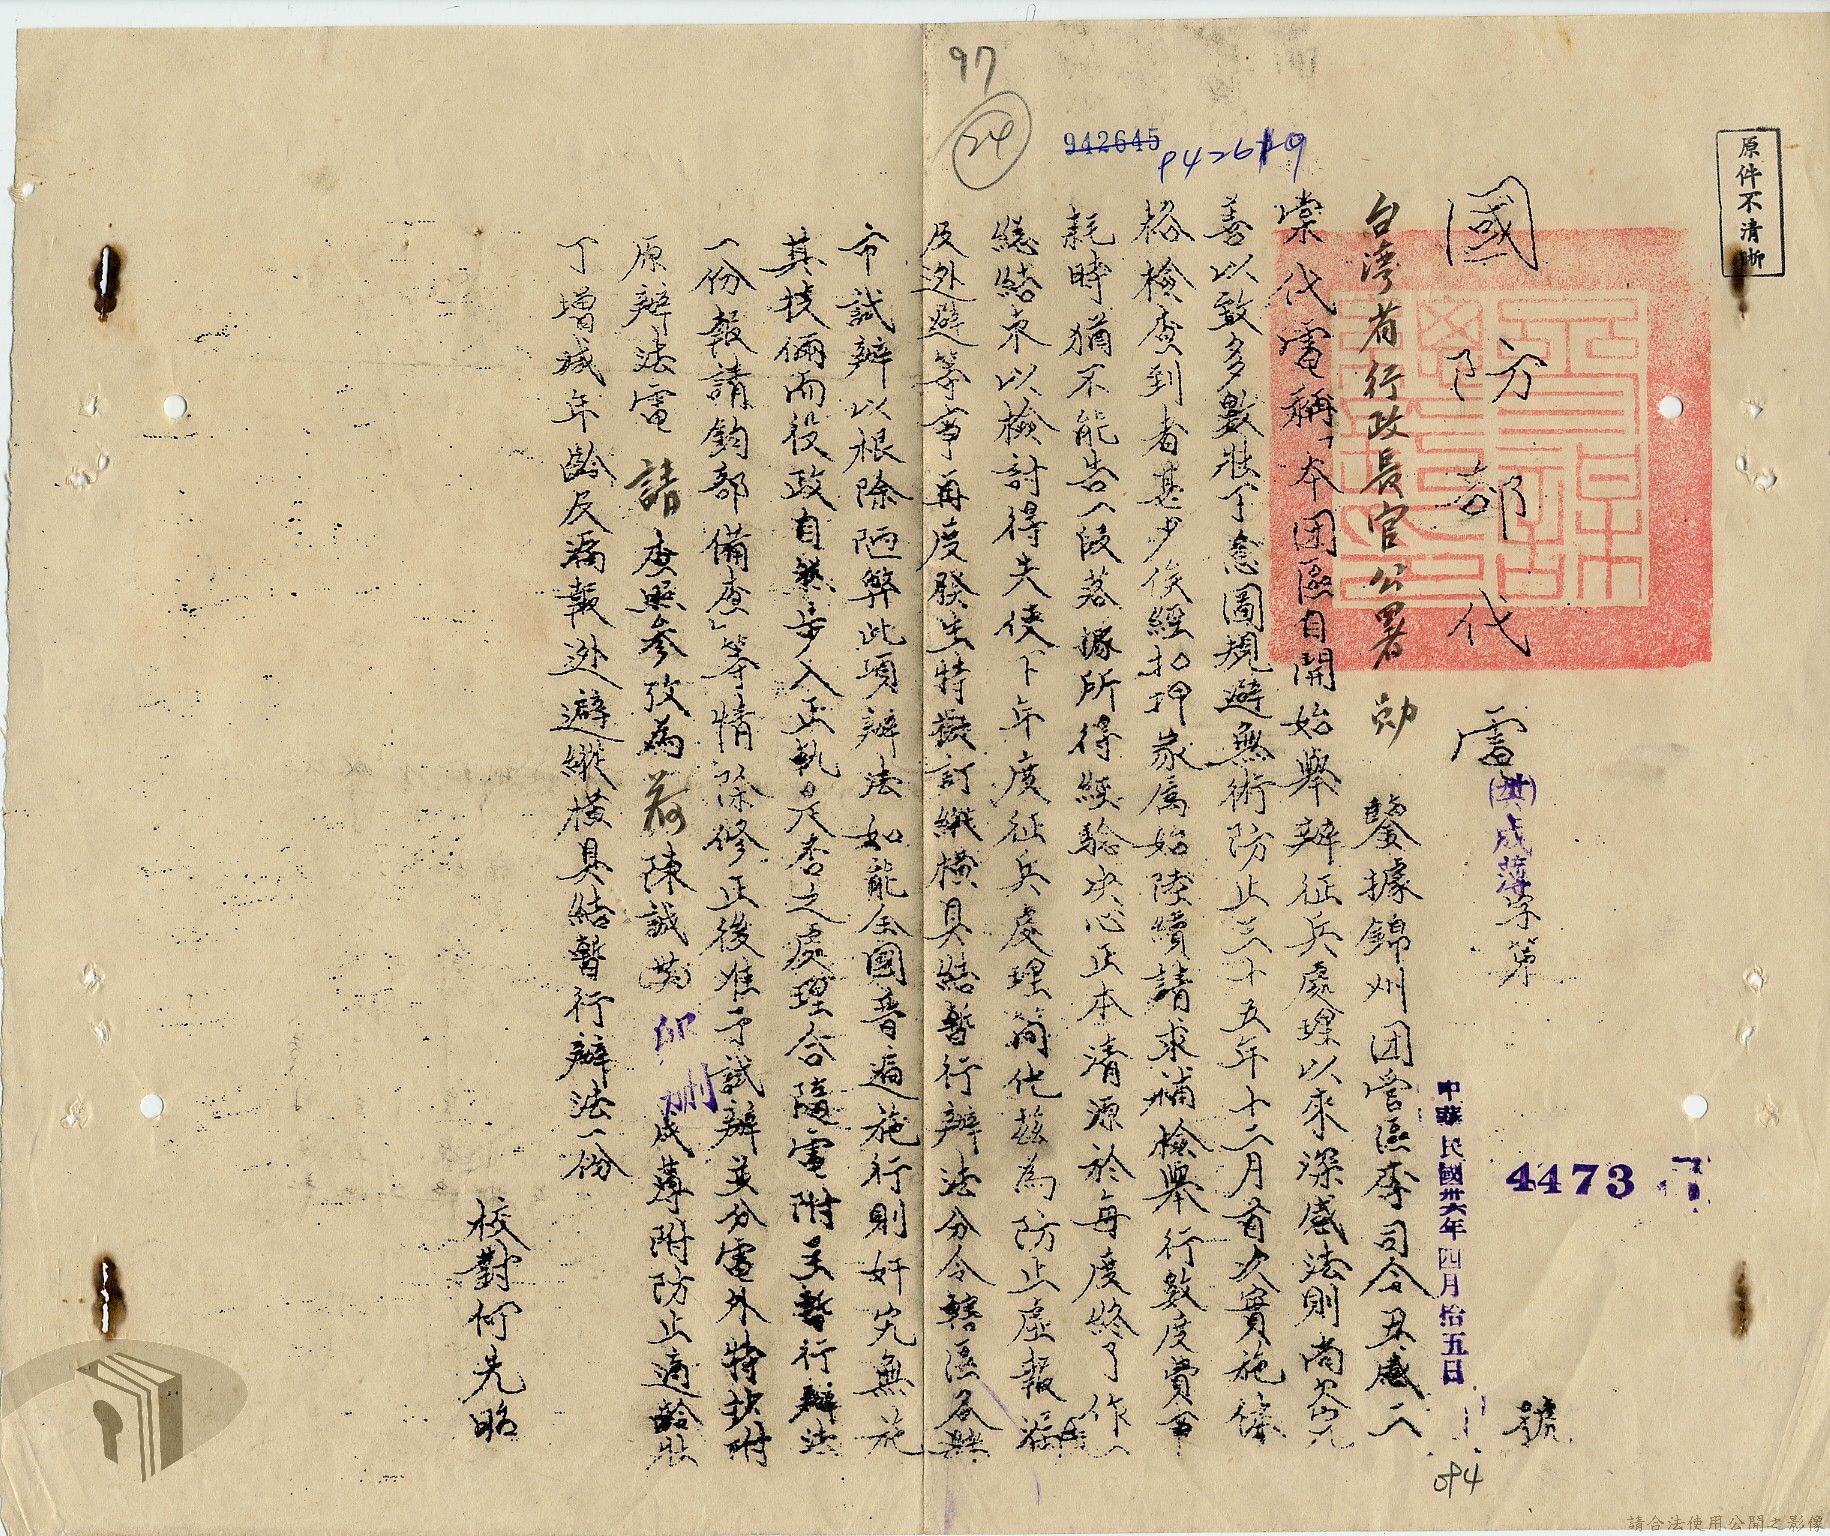 97
24
942645
942619
原件不清晰
國防部代電
(卅六)成薄字第 4473 號
中華民國卅六年四月拾五日
台灣省行政長官公署勛鑒據錦州团管區李司令丑感二
代電稱「本团區自開始舉辦征兵處理以來深感法則尚欠完
善以致多數壯丁意圖規避無術防止三十五年十二月首次實施体
格檢查到者甚少俟經扣押家属始陸續請求補檢舉行數度費事
耗時猶不能告一段落據所得經驗决心正本清源於每度終了作一
總結束以檢討得失使下年度征兵處理簡化兹為防止虛報漏
及逃避等事再度發生特擬訂縱橫具結暫行辦法分令轄區各縣
市試辦以根除陋弊此項辦法如能全國普遍施行則奸宄無施
其技倆而役政自然步入正執是否之處理合隨電附呈暫行辦法
一份報請鈞部備查」等情除修正後准予試辦並分電外特抄附
原辦法電請查照參攷為荷陳誠 印 成薄附防止適齡壯
丁增减年齡及漏報逃避縱橫具結暫行辦法一份
校對何先昭
094
請合法使用公開之影像